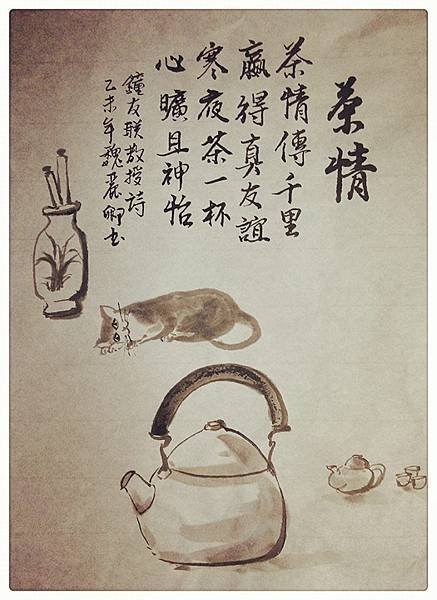 茶情
茶情傳千里
贏得真友誼
寒夜茶一杯
心曠且神怡
鐘友联教授詩
乙未年魏麗卿书